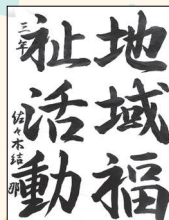 地域福
祉活動
三年
佐々木結那